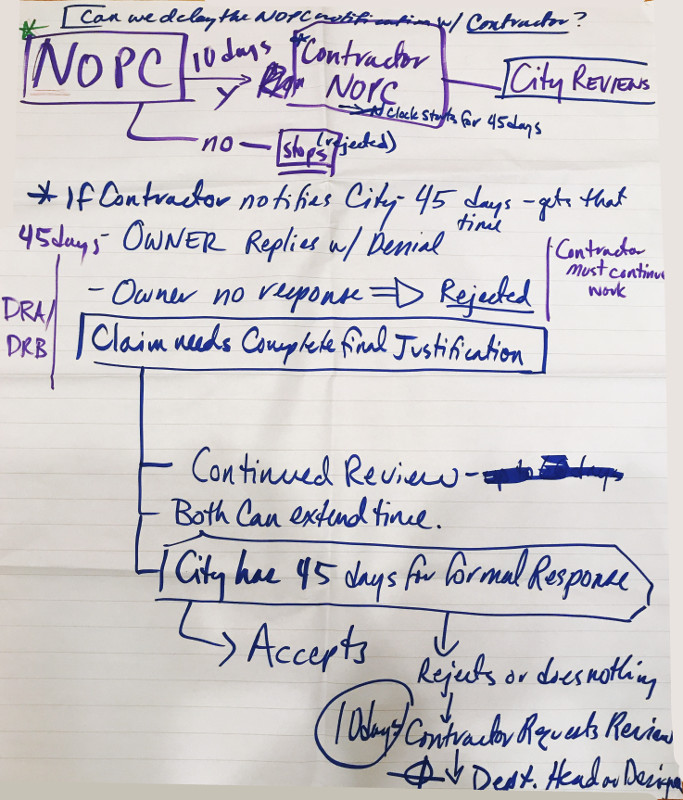 * Can we delay the NOPC notification w/ Contractor?
NOPC
10 days
Y
* Contractor
NOPC
→ Clock starts for 45 days
City Reviews
no - stops (rejected)
* If Contractor notifies City - 45 days - gets that
time
45 days - OWNER Replies w/ Denial
- Owner no response ⇒ Rejected
Contractor
must continue
work
DRA/
DRB
Claim needs Complete final Justification
Continued Review -
- Both Can extend time.
City has 45 days for formal Response
→ Accepts
Rejects or does nothing
10 days
Contractor Requests Review
Dept. Head or